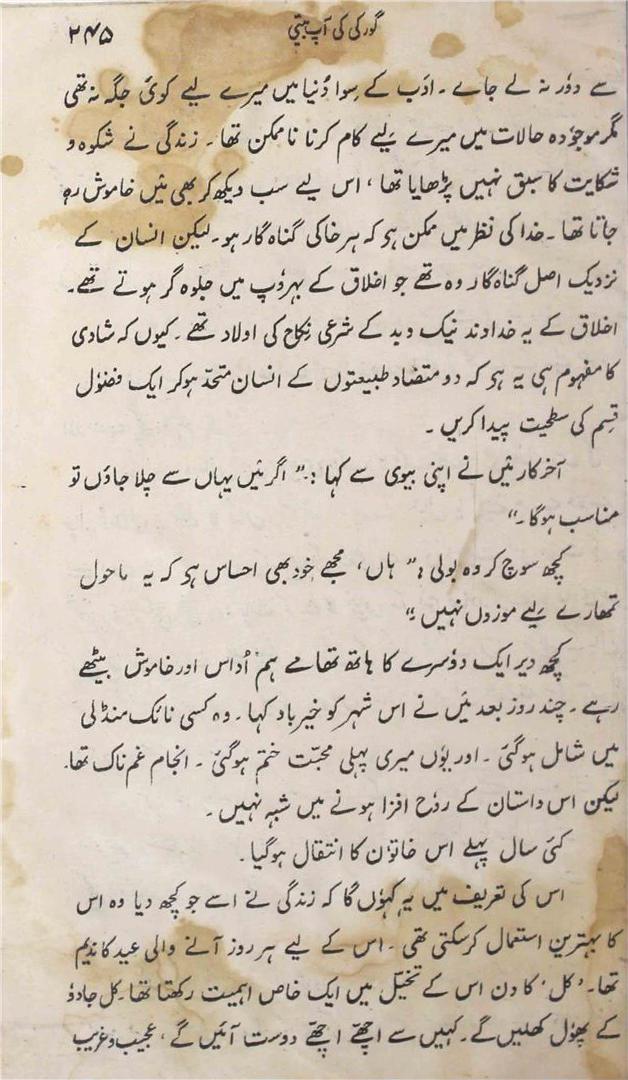 گورکی کی آپ بیتی ۲۴۵
سے دور نہ لے جاے ۔ ادب کے سِوا دُنیا میں میرے لیے کوئ جگہ نہ تھی
مگر موجودہ حالات میں میرے لیے کام کرنا ناممکن تھا ۔ زندگی نے شکوہ و
شکایت کا سبق نہیں پڑھایا تھا ، اس لیے سب دیکھ کر بھی میں خاموش رہ
جاتا تھا ۔ خدا کی نظر میں ممکن ہی کہ ہر خاکی گناہ گار ہو ۔ لیکن انسان کے
نزدیک اصل گناہ گار وہ تھے جو اخلاق کے بہروپ میں جلوہ گر ہوتے تھے ۔
اخلاق کے یہ خداوند نیک و بد کے شرعی نکاح کی اولاد تھے ۔ کیوں کہ شادی
کا مفہوم ہی یہ ہی کہ دو متضاد طبیعتوں کے انسان متحد ہوکر ایک فضول
قسِم کی سطحیت پیدا کریں ۔
آخر کار میں نے اپنی بیوی سے کہا :۔" اگر میں یہاں سے چلا جاؤں تو
مناسب ہوگا ۔"
کچھ سوچ کر وہ بولی :" ہاں ، مجھے خود بھی احساس ہی کہ یہ ماحول
تمھارے لیے موزوں نہیں ۔"
کچھ دیر ایک دوسرے کا ہاتھ تھامے ہم اُداس اور خاموش بیٹھے
رہے ۔ چند روز بعد میں نے اس شہر کو خیرباد کہا ۔ وہ کسی ناٹک منڈلی
میں شامل ہوگئ ۔ اور یوں میری پہلی محبّت ختم ہوگئ ۔ انجام غم ناک تھا
لیکن اس داستان کے روح افزا ہونے میں شبہ نہیں ۔
کئ سال پہلے اس خاتون کا انتقال ہوگیا ۔
اس کی تعریف میں یہ کہوں گا کہ زندگی نے اسے جو کچھ دیا وہ اس
کا بہترین استعمال کرسکتی تھی ۔ اس کے لیے ہر روز آنے والی عید کا ندیم
تھا ۔ 'کل' کا دن اس کے تخیّل میں ایک خاص اہمیت رکھتا تھا ۔ کل جادو
کے پھول کھلیں گے ۔ کہیں سے اچھّے اچھّے دوست آئیں گے ، عجیب و غریب